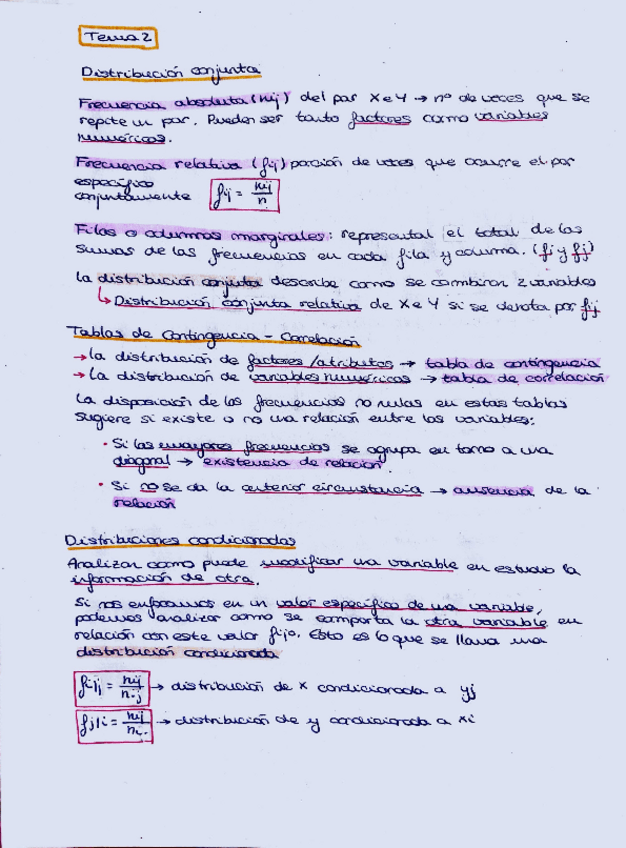 Tema 2
Distribución conjunta
Frecuencia absoluta (nij) del par X e Y → nº de veces que se
repite un par. Pueden ser tanto factores como variables
numéricas.
Frecuencia relativa (fij) porción de veces que ocurre el par
específico
conjuntamente fij = nij/n
Filas o columnas marginales: represental el total de las
sumas de las frecuencias en cada fila y columna. (fi y fj)
La distribución conjunta describe como se combiran 2 variables
↳ Distribución conjunta relativa de X e Y si se denota por fij
Tablas de Contingencia - Correlación
→ la distribución de factores/atributos → tabla de contingencia
→ La distribución de variables numéricas → tabla de correlación
La disposición de las frecuencias no nulas en estas tablas
sugiere si existe o no una relación entre las variables:
• Si las mayores frecuencias se agrupa en torno a una
diagonal → existencia de relación.
• Si no se da la anterior circustancia → ausencia de la
relación
Distribuciones condicionadas
Analizan como puede modificar una variable en estudio la
información de otra.
Si nos enfocamos en un valor específico de una variable,
podemos analizar como se comporta la otra variable en
relación con este valor fijo. Esto es lo que se llama una
distribución condicionada
fi|j = nij/n.j → distribución de x condicionada a yj
fj|i = nij/ni. → distribución de y condicionada a xi